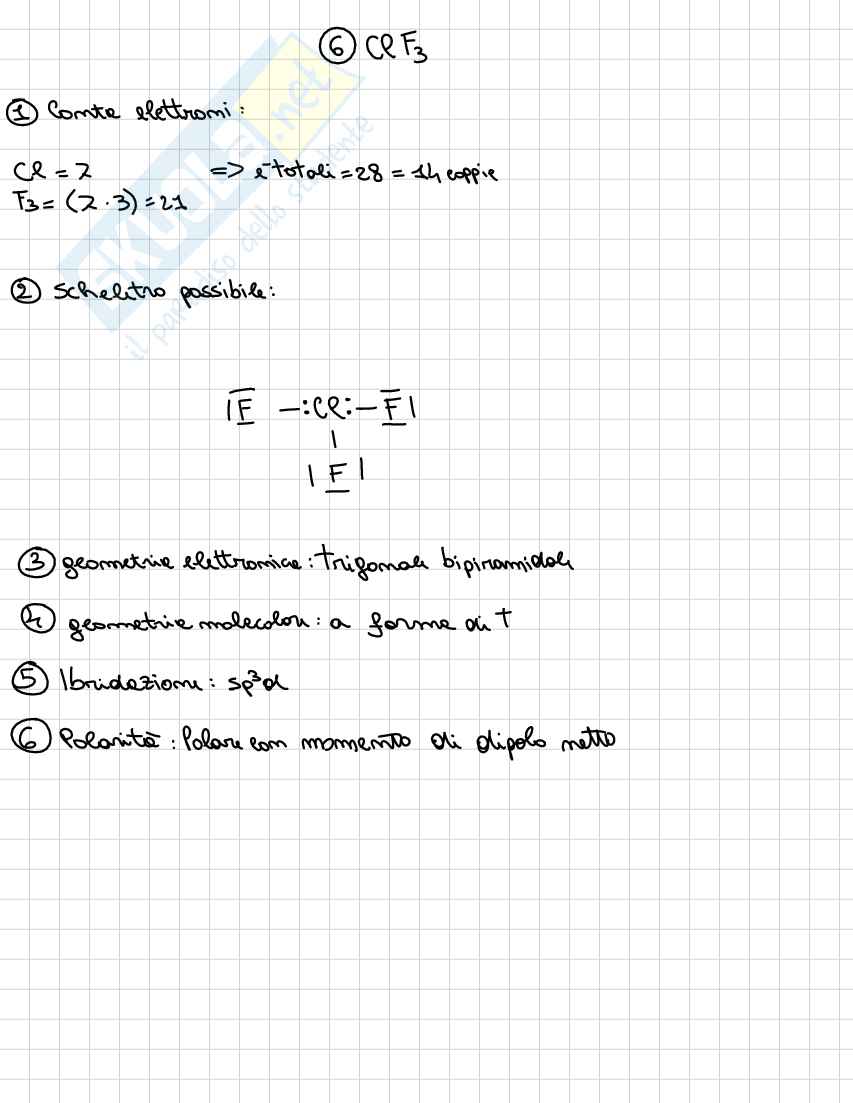 ⑥ ClF₃
① Conta elettroni:
Cl = 7 => e⁻ totali = 28 = 14 coppie
F₃ = (7·3) = 21
② Scheletro possibile:
|F̅ — :Cl: — F̅|
|
|F|
③ geometria elettronica: Trigonale bipiramidale
④ geometria molecolare: a forma di T
⑤ Ibridazione: sp³d
⑥ Polarità: Polare con momento di dipolo netto
SKUOLA.net
il paradiso dello studente